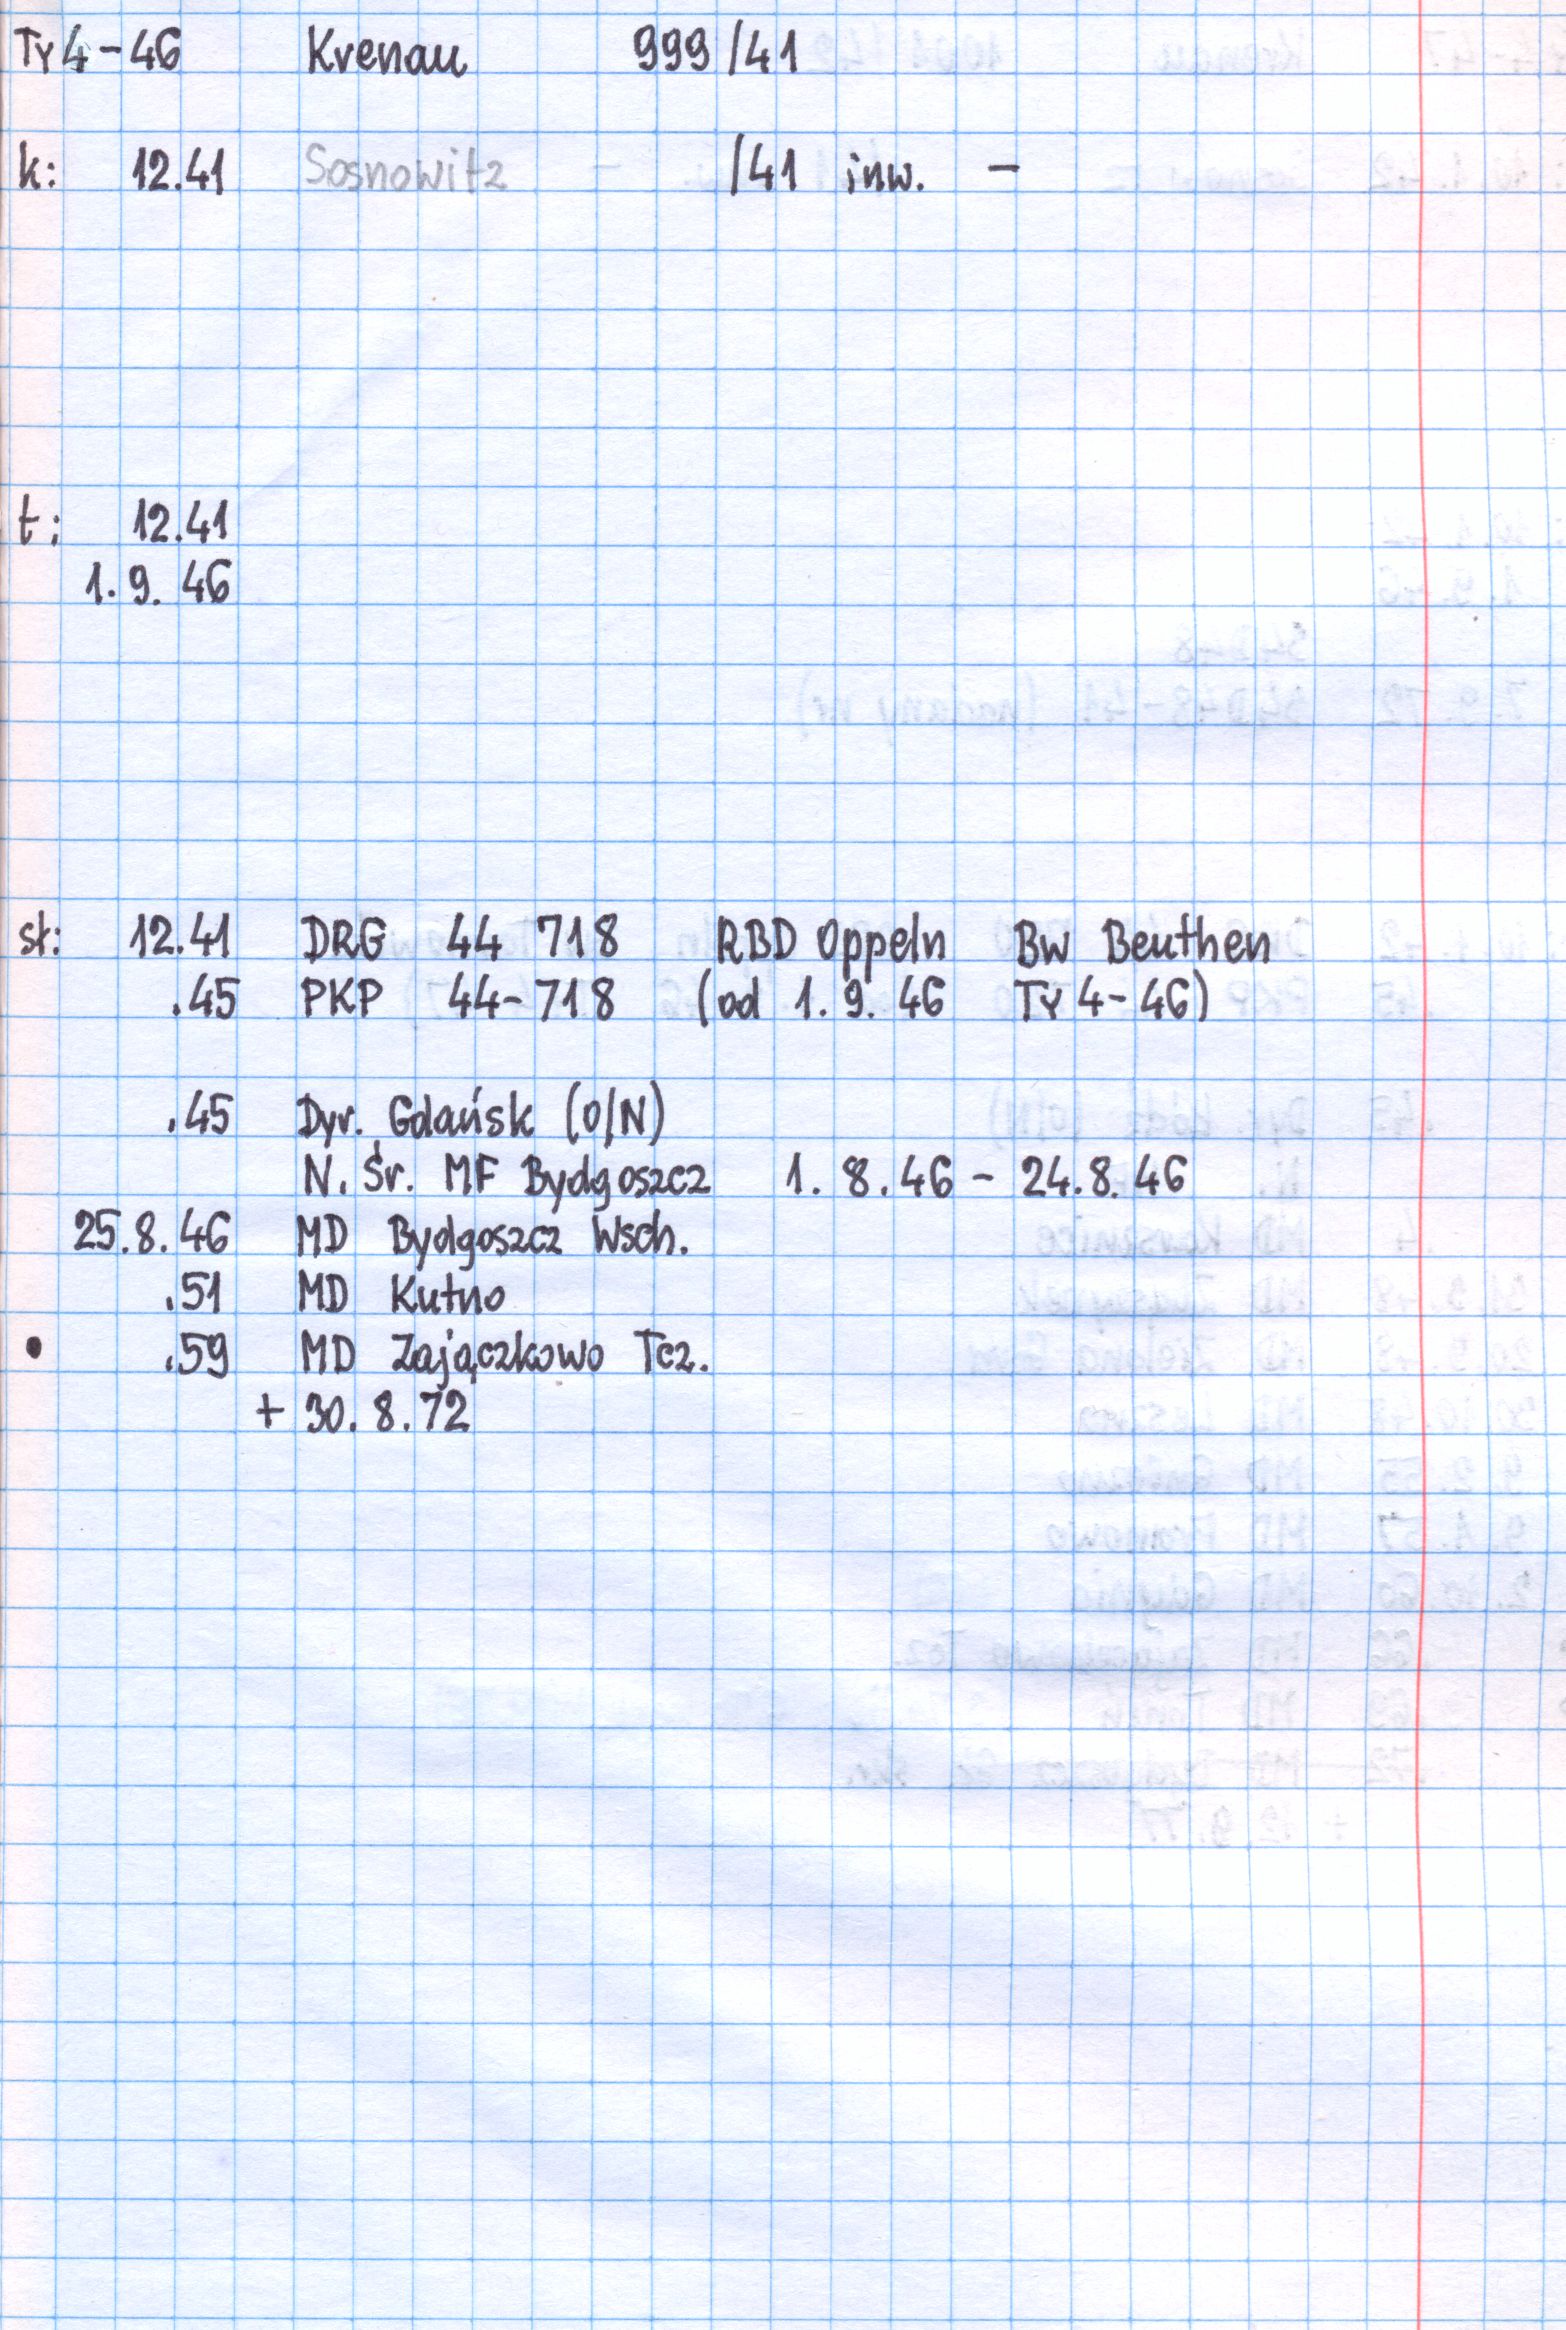 Ty4-46 Krenau 999/41
k: 12.41 Sosnowitz /41 inw. -
t: 12.41
1.9.46
sł: 12.41 DRG 44 718 RBD Oppeln Bw Beuthen
.45 PKP 44-718 (od 1.9.46 Ty4-46)
.45 Dyr. Gdańsk (O/N)
N. Śr. MF Bydgoszcz 1.8.46 - 24.8.46
25.8.46 MD Bydgoszcz Wsch.
.51 MD Kutno
• .59 MD Zajączkowo Tcz.
+ 30.8.72